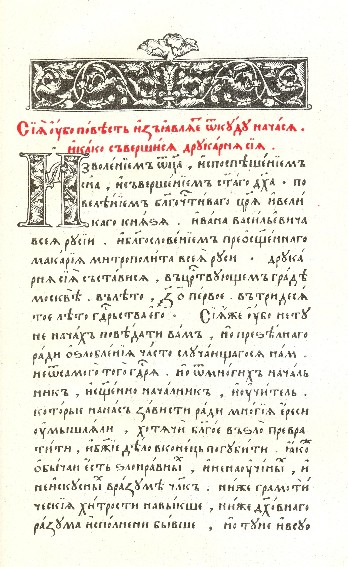 Сиѧ ѹбо повѣсть изъѧвлѧетъ ѿкꙋдꙋ начасѧ .
и како съвершисѧ дрꙋкарнѧ сиѧ .
Изволенїемъ ѿца , и споспѣшенїемъ
сна , и съвершенїемъ стаго дха . по
велѣнїемъ блгочтиваго црѧ и вели
каго кнѧзѧ . ивана васильевича
всеѧ рꙋсїи . и благословенїемъ преосщеннаго
макарїѧ митрополита всеѧ рꙋси . дрꙋка
рнѧ сиѧ състависа , въ цртвꙋющемъ градѣ
москвѣ . въ лѣто , первое . въ тридесѧ
тое лѣто гдрьства его . Сиѧ же ѹбо не тꙋ
не начахъ повѣдати вамъ , но презѣлнаго
ради ѡзлобленїѧ часто слꙋчающагосѧ нам .
не ѿ самого того гдрѧ . но ѿ многих началь
ник , и сщенно началник , и ѹчитель .
которые на нас зависти ради многїѧ ереси
ѹмышлѧли , хотѧчи блгое въ зло превра
тити , и бжїе дѣло вконець погꙋбити . ꙗко
ѡбычаи есть злонравных , и ненаꙋченых , и
неискꙋсных в разꙋмѣ члк . ниже грамоти
ческїѧ хитрости навыкше , ниже дховнаго
разꙋма исполнени бывше , но тꙋне и всꙋю